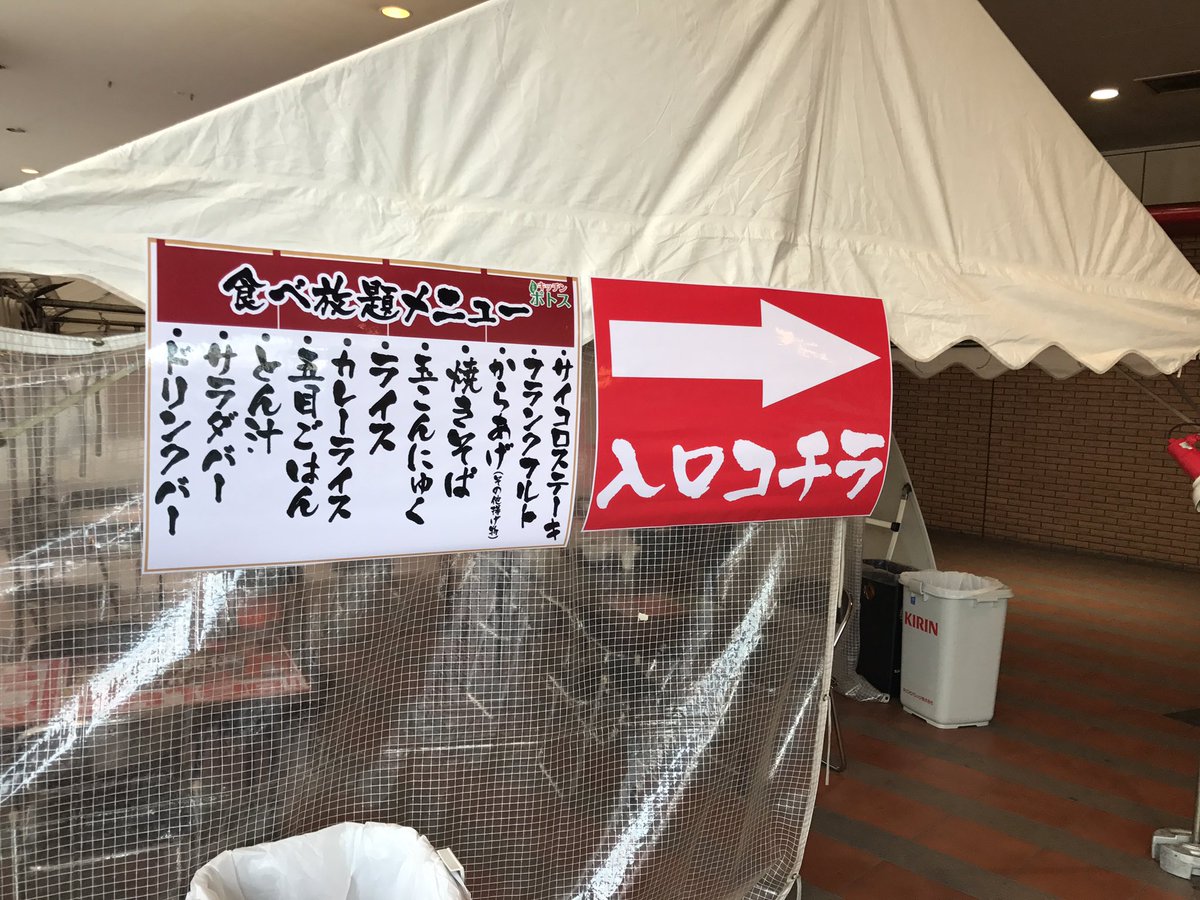 食べ放題メニュー
キッチン
ポトス
・サイコロステーキ
・フランクフルト
・からあげ(その他揚げ物)
・焼きそば
・玉こんにゃく
・ライス
・カレーライス
・五目ごはん
・とん汁
・サラダバー
・ドリンクバー
入口コチラ
KIRIN